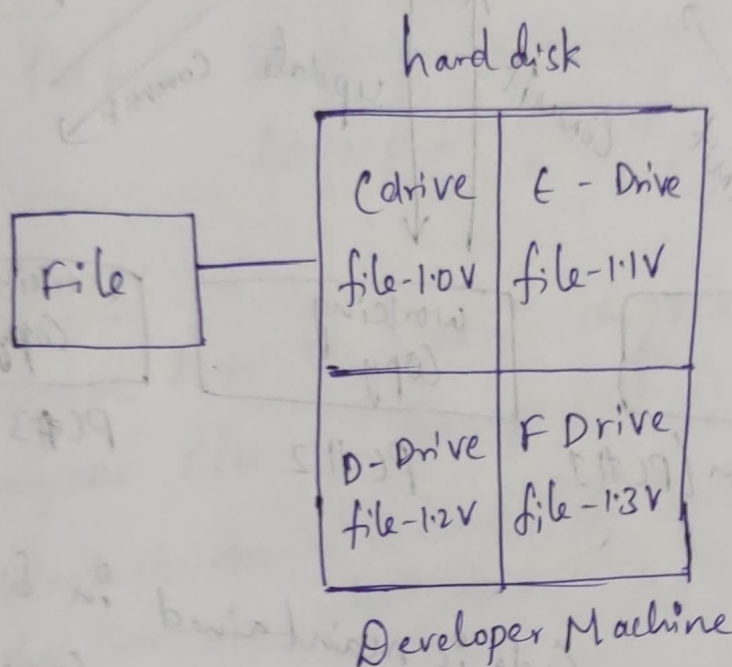 hard disk
File
C drive
file-1.0V
E - Drive
file-1.1V
D-Drive
file-1.2V
F Drive
file-1.3V
Developer Machine